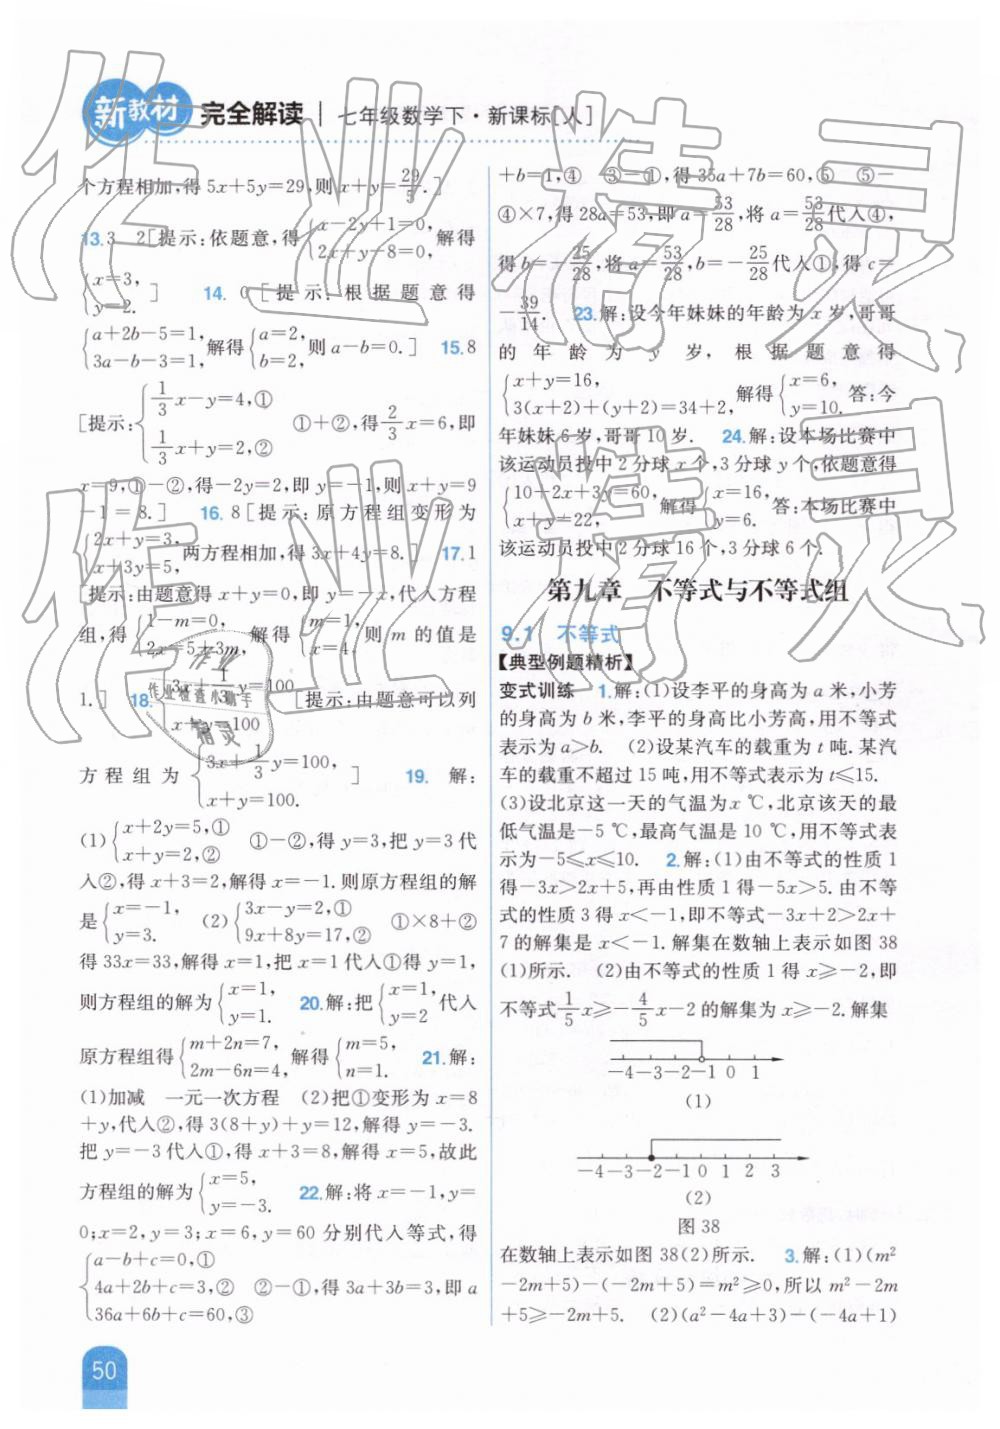 新教材 完全解读 | 七年级数学下·新课标[人]
个方程相加,得 5x+5y=29,则 x+y=29/5.]
13.3 2[提示:依题意,得{x-2y+1=0, 2x+y-8=0,解得
{x=3, y=2. ] 14. 0 [提示:根据题意得
{a+2b-5=1, 3a-b-3=1,解得{a=2, b=2,则 a-b=0.] 15.8
[提示:{1/3x-y=4,① 1/3x+y=2,② ①+②,得2/3x=6,即
x=9,①-②,得-2y=2,即 y=-1,则 x+y=9
-1=8.] 16. 8[提示:原方程组变形为
{2x+y=3, x+3y=5,两方程相加,得 3x+4y=8.] 17.1
[提示:由题意得 x+y=0,即 y=-x,代入方程
组,得{1-m=0, 2x=5+3m,解得{m=1, x=4.则 m 的值是
1.] 18.{3x+1/3y=100 x+y=100 [提示:由题意可以列
方程组为{3x+1/3y=100, x+y=100. ] 19. 解:
(1){x+2y=5,① x+y=2,② ①-②,得 y=3,把 y=3 代
入②,得 x+3=2,解得 x=-1.则原方程组的解
是{x=-1, y=3. (2){3x-y=2,① 9x+8y=17,② ①×8+②
得 33x=33,解得 x=1,把 x=1 代入①得 y=1,
则方程组的解为{x=1, y=1. 20.解:把{x=1, y=2 代入
原方程组得{m+2n=7, 2m-6n=4,解得{m=5, n=1. 21.解:
(1)加减 一元一次方程 (2)把①变形为 x=8
+y,代入②,得 3(8+y)+y=12,解得 y=-3.
把 y=-3 代入①,得 x+3=8,解得 x=5,故此
方程组的解为{x=5, y=-3. 22.解:将 x=-1,y=
0;x=2,y=3;x=6,y=60 分别代入等式,得
{a-b+c=0,① 4a+2b+c=3,② 36a+6b+c=60,③ ②-①,得 3a+3b=3,即 a
+b=1,④ ③-①,得 35a+7b=60,⑤ ⑤-
④×7,得 28a=53,即 a=53/28,将 a=53/28代入④,
得 b=-25/28,将 a=53/28,b=-25/28代入①,得 c=
-39/14. 23.解:设今年妹妹的年龄为 x 岁,哥哥
的年龄为 y 岁,根据题意得
{x+y=16, 3(x+2)+(y+2)=34+2,解得{x=6, y=10.答:今
年妹妹 6 岁,哥哥 10 岁. 24.解:设本场比赛中
该运动员投中 2 分球 x 个,3 分球 y 个,依题意得
{10+2x+3y=60, x+y=22,解得{x=16, y=6. 答:本场比赛中
该运动员投中 2 分球 16 个,3 分球 6 个.
第九章 不等式与不等式组
9.1 不等式
【典型例题精析】
变式训练 1.解:(1)设李平的身高为 a 米,小芳
的身高为 b 米,李平的身高比小芳高,用不等式
表示为 a>b. (2)设某汽车的载重为 t 吨.某汽
车的载重不超过 15 吨,用不等式表示为 t≤15.
(3)设北京这一天的气温为 x ℃,北京该天的最
低气温是-5 ℃,最高气温是 10 ℃,用不等式表
示为-5≤x≤10. 2.解:(1)由不等式的性质 1
得-3x>2x+5,再由性质 1 得-5x>5.由不等
式的性质 3 得 x<-1,即不等式-3x+2>2x+
7 的解集是 x<-1.解集在数轴上表示如图 38
(1)所示. (2)由不等式的性质 1 得 x≥-2,即
不等式1/5x≥-4/5x-2 的解集为 x≥-2.解集
-4-3-2-1 0 1
(1)
-4-3-2-1 0 1 2 3
(2)
图 38
在数轴上表示如图 38(2)所示. 3.解:(1)(m²
-2m+5)-(-2m+5)=m²≥0,所以 m²-2m
+5≥-2m+5. (2)(a²-4a+3)-(-4a+1)
50
作业精灵
作业精灵
作业
作业检查小助手
精灵